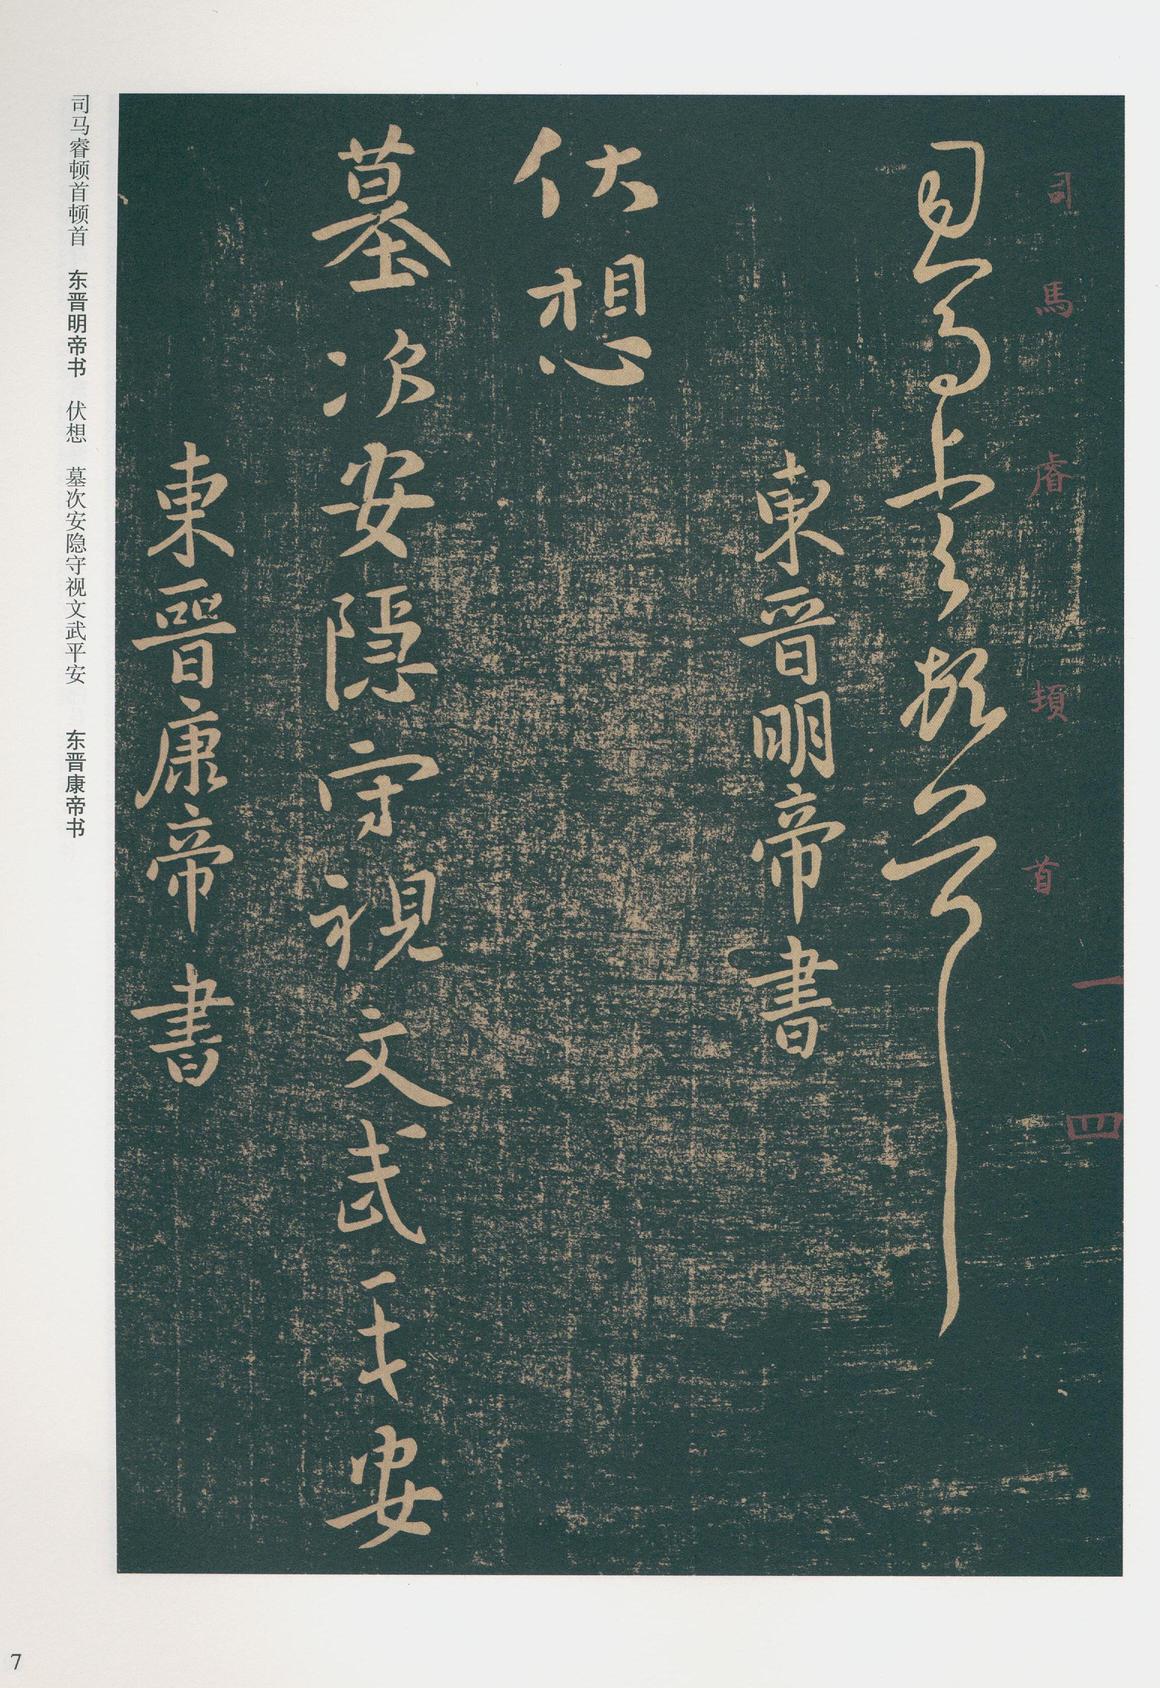 司馬睿頓首
一四
司马睿顿首顿首
東晉明帝書
伏想
墓次安隱守視文武平安
東晉康帝書
司马睿顿首顿首 东晋明帝书 伏想 墓次安隐守视文武平安 东晋康帝书
7